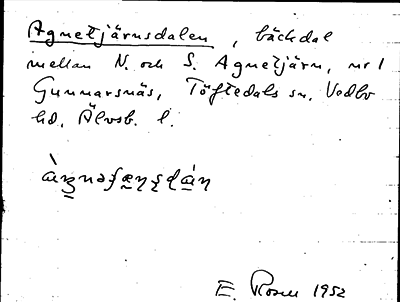 Agnetjärnsdalen, bäckdal
mellan N. och S. Agnetjärn, nr 1
Gunnarsnäs, Töftedals sn, Vedbo
hd, Älvsb. l.
E. Rosell 1952